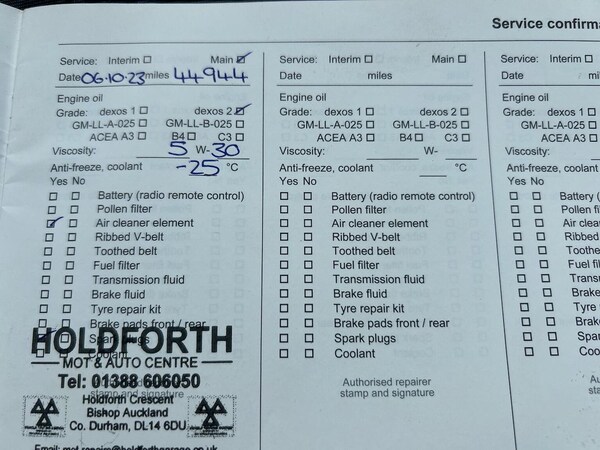 Service confirma
Service: Interim ☐ Main ☑
Date 06.10.23 miles 44944
Engine oil
Grade: dexos 1 ☐ dexos 2 ☑
GM-LL-A-025 ☐ GM-LL-B-025 ☐
ACEA A3 ☐ B4 ☐ C3 ☐
Viscosity: 5 W- 30
Anti-freeze, coolant -25 °C
Yes No
☐ ☐ Battery (radio remote control)
☐ ☐ Pollen filter
☑ ☐ Air cleaner element
☐ ☐ Ribbed V-belt
☐ ☐ Toothed belt
☐ ☐ Fuel filter
☐ ☐ Transmission fluid
☐ ☐ Brake fluid
☐ ☐ Tyre repair kit
☐ ☐ Brake pads front / rear
Spark plugs
Coolant
HOLDFORTH
MOT & AUTO CENTRE
Tel: 01388 606050
stamp and signature
Holdforth Crescent
Bishop Auckland
Co. Durham, DL14 6DU
Service: Interim ☐ Main ☐
Date miles
Engine oil
Grade: dexos 1 ☐ dexos 2 ☐
GM-LL-A-025 ☐ GM-LL-B-025 ☐
ACEA A3 ☐ B4 ☐ C3 ☐
Viscosity: W-
Anti-freeze, coolant °C
Yes No
☐ ☐ Battery (radio remote control)
☐ ☐ Pollen filter
☐ ☐ Air cleaner element
☐ ☐ Ribbed V-belt
☐ ☐ Toothed belt
☐ ☐ Fuel filter
☐ ☐ Transmission fluid
☐ ☐ Brake fluid
☐ ☐ Tyre repair kit
☐ ☐ Brake pads front / rear
☐ ☐ Spark plugs
☐ ☐ Coolant
Authorised repairer
stamp and signature
Service: Interim ☐
Date mi
Engine oil
Grade: dexos 1 ☐
GM-LL-A-025 ☐
ACEA A3 ☐
Viscosity:
Anti-freeze, coolant
Yes No
☐ ☐ Battery (
☐ ☐ Pollen fi
☐ ☐ Air clea
☐ ☐ Ribbed
☐ ☐ Toothe
☐ ☐ Fuel filt
☐ ☐ Trans
☐ ☐ Brake
☐ ☐ Tyre
☐ ☐ Brak
☐ ☐ Spar
☐ ☐ Coo
Au
sta